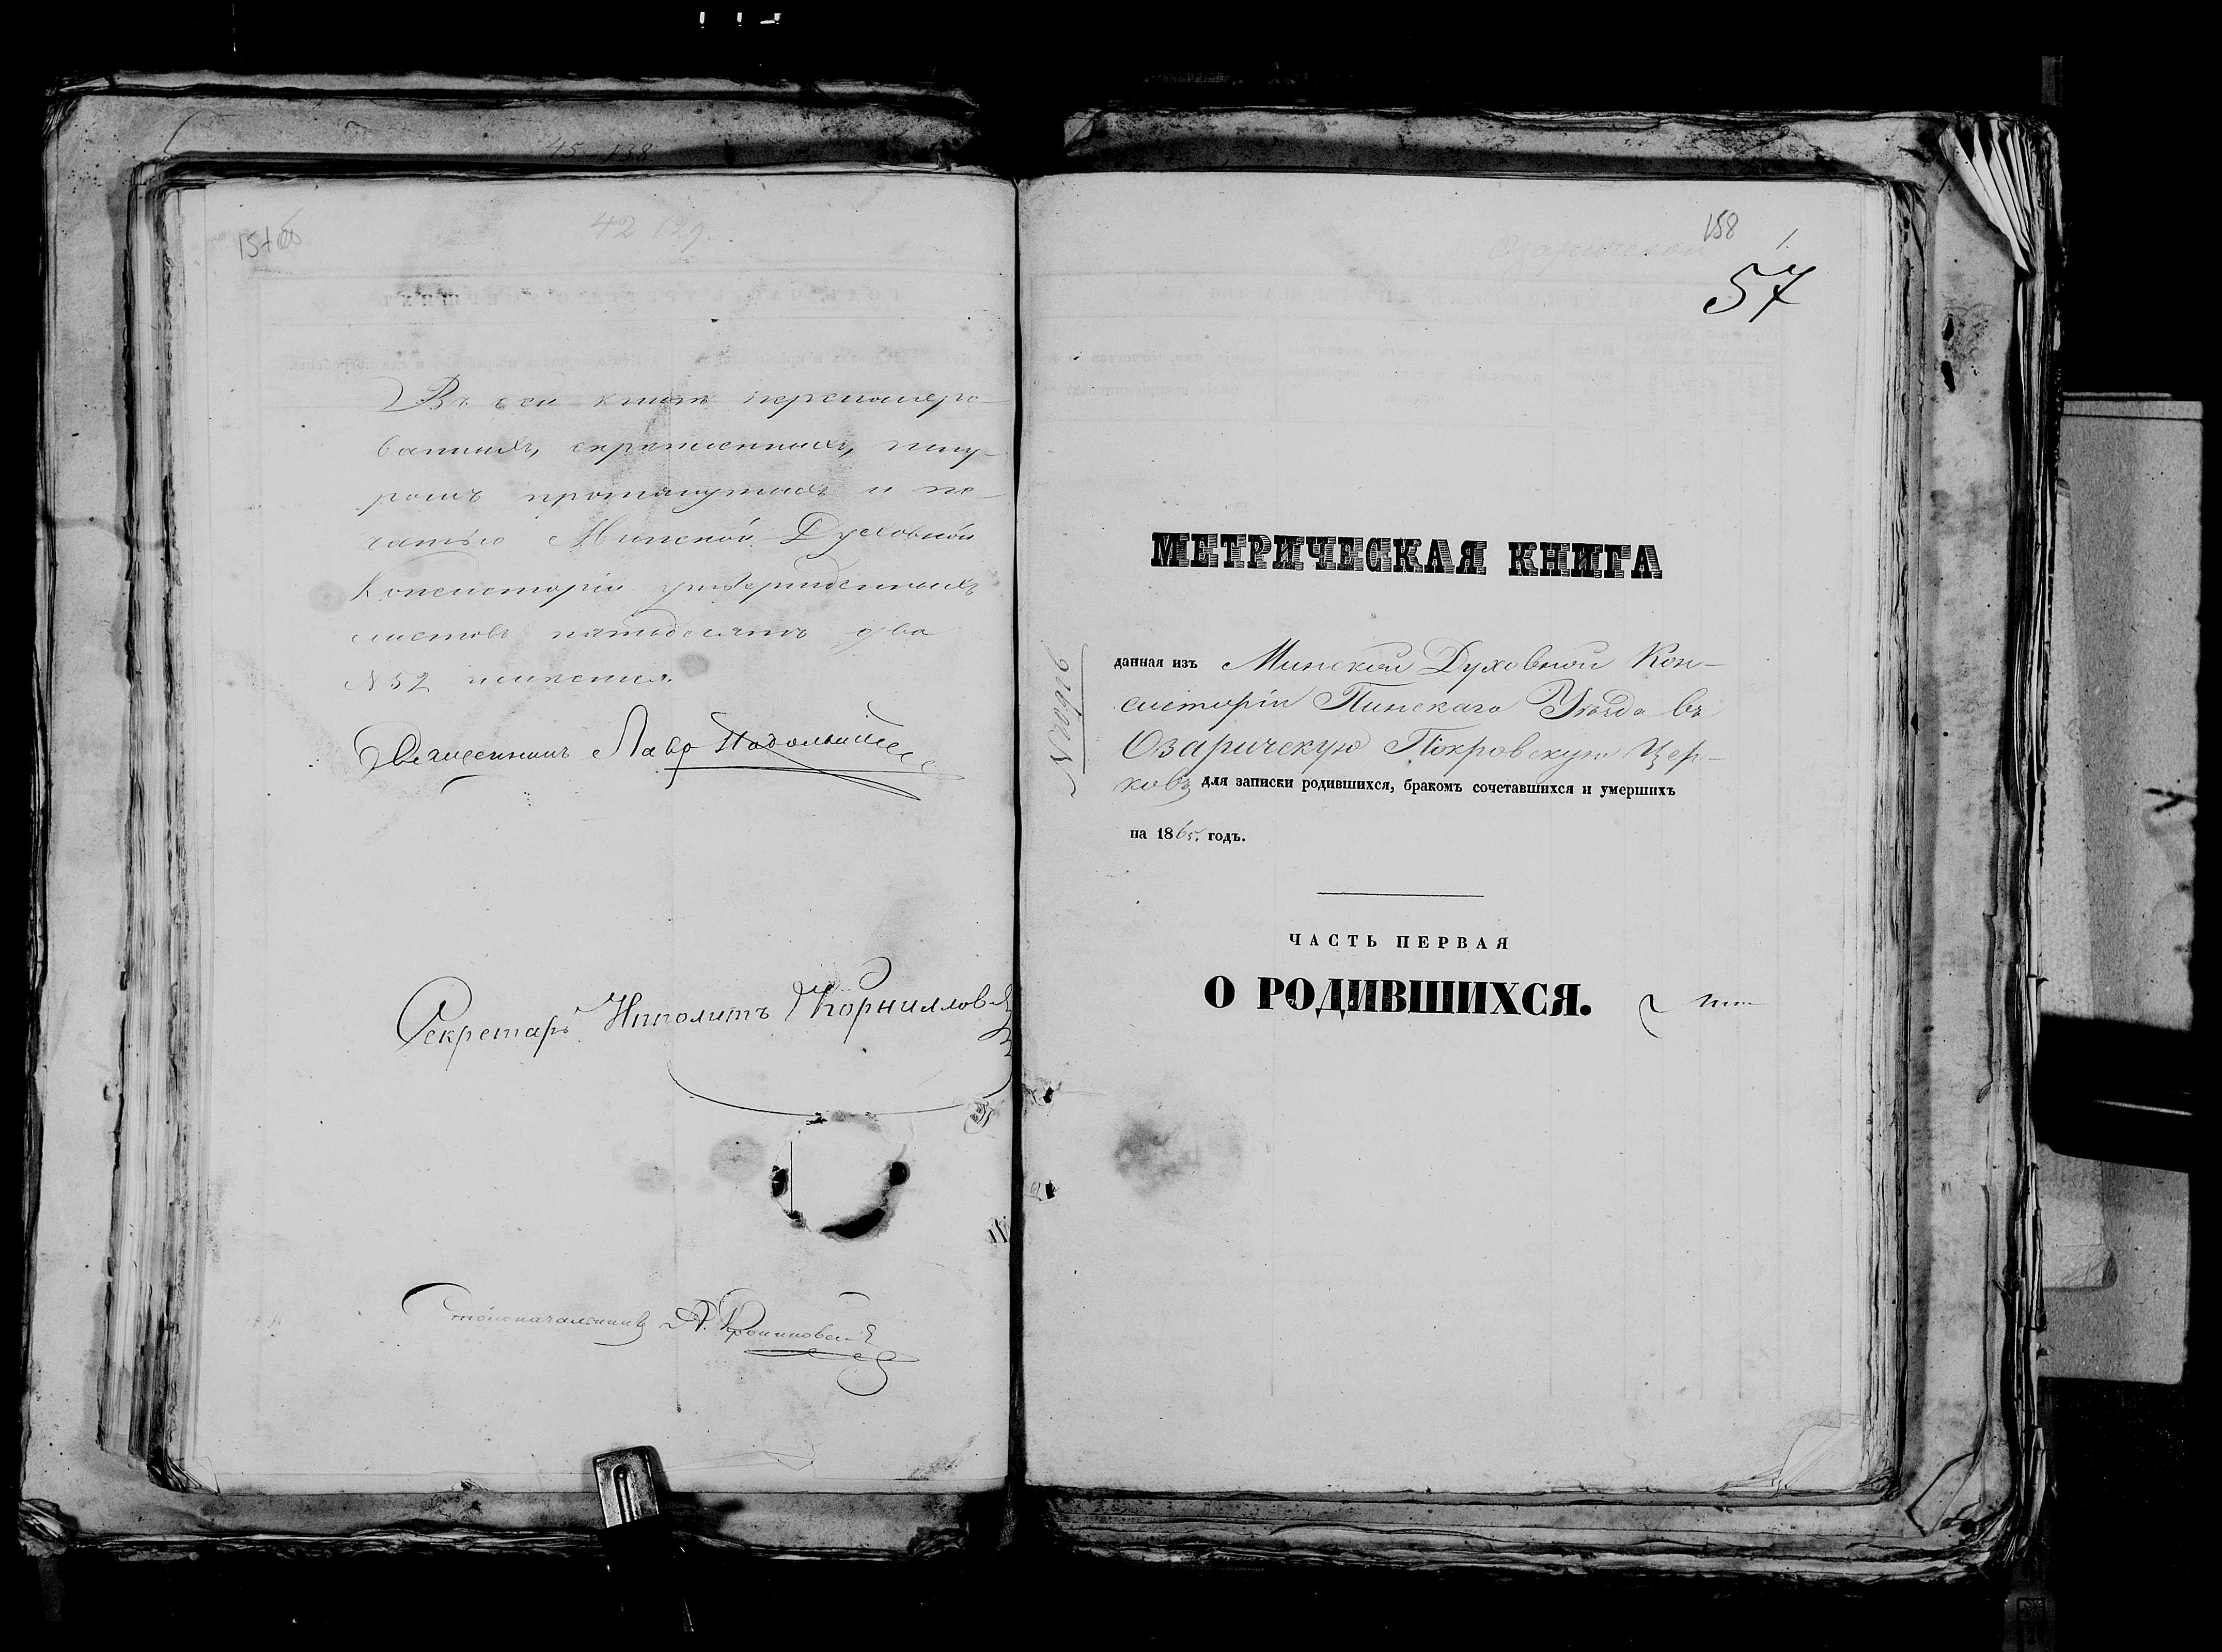 45 138
42 129.
Въ сей книгѣ перенумеро-
ванныхъ, скрѣпленныхъ, шну-
ромъ протянутыхъ и пе-
чатью Минской Духовной
Консисторіи утвержденныхъ
листовъ пятьдесятъ два
N 52
Священникъ
Секретарь Ипполитъ Корниллов
Столоначальникъ А.
158
1.
57
Озарической
МЕТРИЧЕСКАЯ КНИГА
данная изъ Минской Духовной Кон-
систоріи Пинскаго Уѣзда въ
Озаричскую Покровскую Цер-
ковь для записки родившихся, бракомъ сочетавшихся и умершихъ
на 1865. годъ.
ЧАСТЬ ПЕРВАЯ
О РОДИВШИХСЯ.